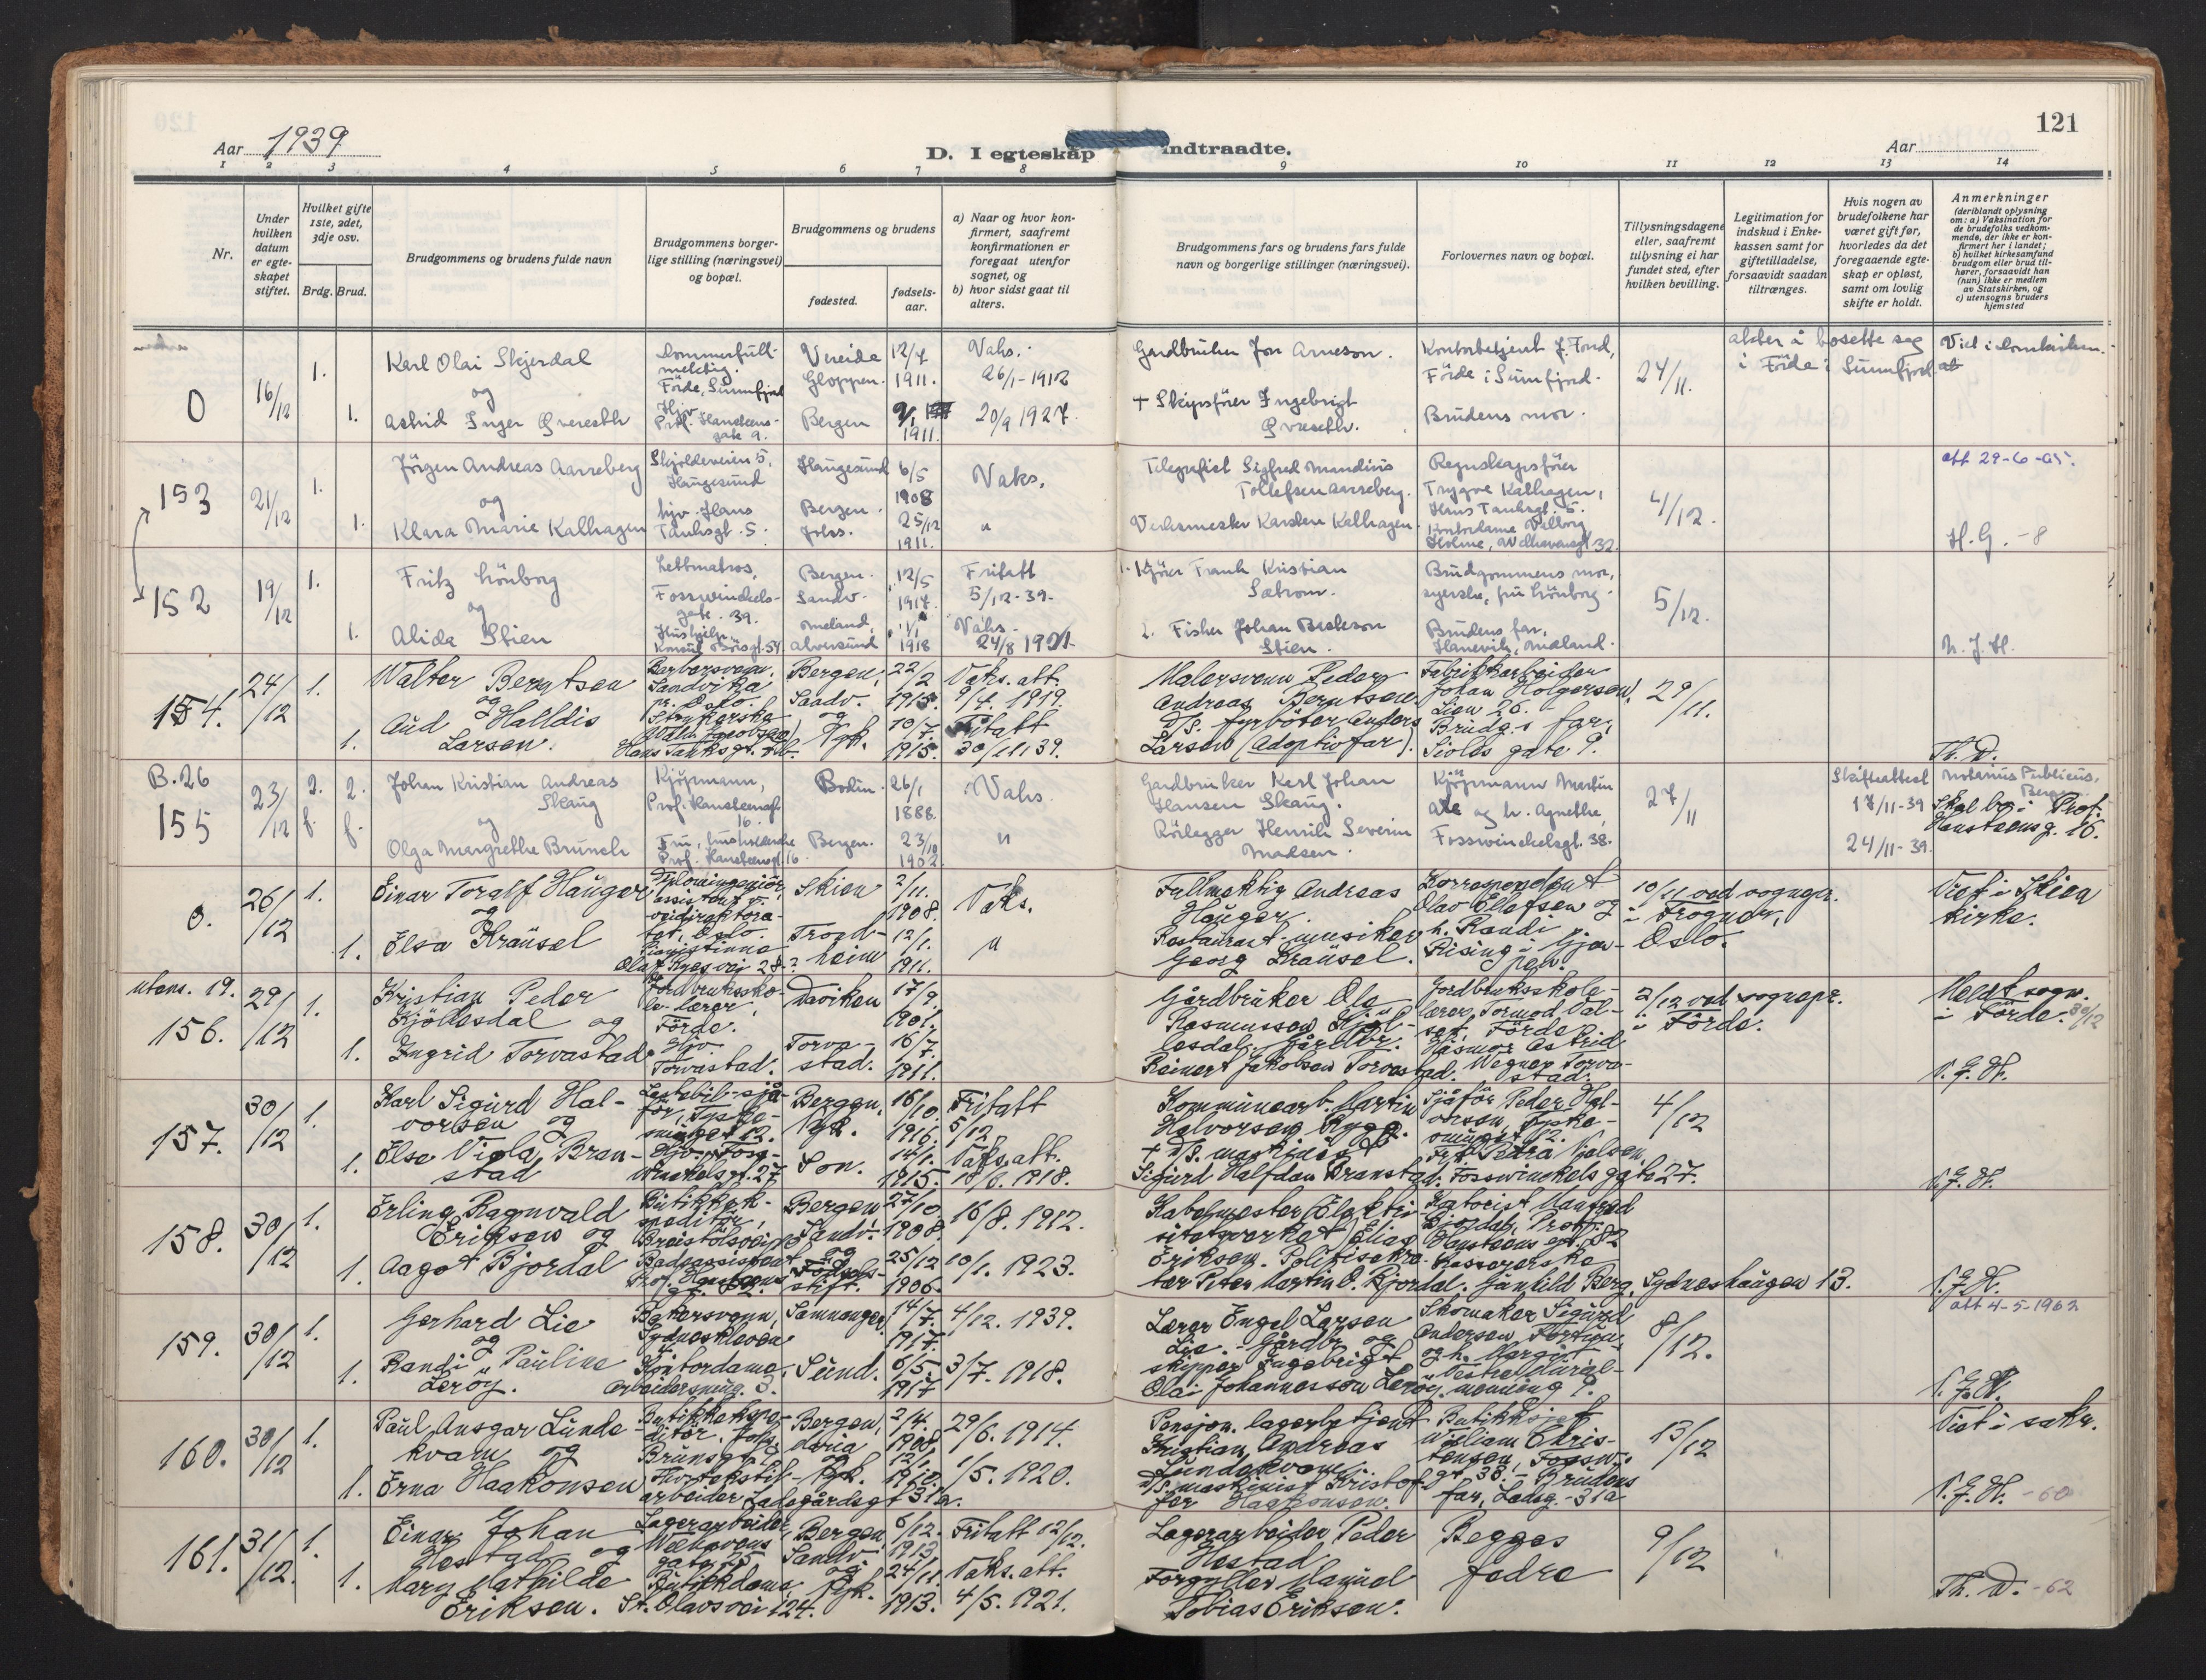 Aar 1939
D. I egteskap indtraadte.
Aar
121
1 2 3 4 5 6 7 8 9 10 11 12 13 14
Nr.
Under hvilken datum er egteskapet stiftet.
Hvilket gifte 1ste, 2det, 3dje osv.
Brdg. Brud.
Brudgommens og brudens fulde navn
Brudgommens borgerlige stilling (næringsvei) og bopæl.
Brudgommens og brudens
fødested.
fødselsaar.
a) Naar og hvor konfirmert, saafremt konfirmationen er foregaat utenfor sognet, og
b) hvor sidst gaat til alters.
Brudgommens fars og brudens fars fulde navn og borgerlige stillinger (næringsvei).
Forlovernes navn og bopæl.
Tillysningsdagene eller, saafremt tillysning ei har fundet sted, efter hvilken bevilling.
Legitimation for indskud i Enkekassen samt for giftetilladelse, forsaavidt saadan tiltrænges.
Hvis nogen av brudefolkene har været gift før, hvorledes da det foregaaende egteskap er opløst, samt om lovlig skifte er holdt.
Anmerkninger
(deriblandt oplysning om: a) Vaksination for de brudefolks vedkommende, der ikke er konfirmert her i landet; b) hvilket kirkesamfund brudgom eller brud tilhører, forsaavidt han (hun) ikke er medlem av Statskirken, og c) utensogns bruders hjemsted
0
16/12
1.
Karl Olai Skjerdal
og
1.
Astrid Inger Qvereseth
Førde, Sunnfjord
Hjv.
Prof. Hansteens gate 9.
Vereide
Gloppen.
Bergen
12/4
1911.
1911.
Vaks.
26/1-1912
20/9 1927.
Gardbruker Jon Arneson.
+ Skipsfører Ingebrigt
Kontorbetjent J. Fond,
Førde i Sunnfjord.
Brudens mor.
24/11.
akter å bosette seg
i Førde i Sunnfjord
153
21/12
1.
Jørgen Andreas Aarreberg
og
1.
Klara Marie Kalhagen
Skjoldeveien 5,
Haugesund
hjv. Hans
Tanksgt. 5.
Haugesund
Bergen.
Johs.
6/5
1908
25/12
1911.
Vaks.
"
Telegrafist Sigfred Mandius
Tollefsen Aarreberg.
Verksmester Karsten Kalhagen.
Regnskapsfører
Trygve Kalhagen,
Hans Tanksgt. 5.
Kontordame Valborg
Holme, Welhavensgt 32.
4/12.
att 29-6-65.
H. G. - 8
152
19/12
1.
Fritz Lönborg
og
1.
Alida Stien
Lettmatros,
Fosswinckels-
gate. 39.
Hushjelp
Bergen.
Sandv.
Meland,
Alversund
12/5
1917.
1918
Fritatt
5/12-39-
Vaks-
Kjører Frank Kristian
Sætrom.
2. Fisker Johan Bertson
Stien.
Brudgommens mor,
syerske, fru Lönborg.
Brudens far,
Hanevik, Meland.
5/12.
154.
24/12
1.
Walter Berntsen
og
1.
Aud Halldis
Larsen.
Barbersvenn,
Sandvika
pr. Oslo.
Strykerske
Bergen,
Sandv.
og
Nyk.
22/2
10/7.
1915.
Vaks. att.
9/4. 1919.
Fritatt
30/11 39.
Malersvenn Peder
Andreas Berntsen.
D/S. fyrbøter Anders
Larsen (Adoptivfar).
Fabrikkarbeider
Johan Holgersen,
Lien 26.
Brudg.s far,
29/11.
Th. D.
B. 26
155
23/12
2. 2.
f. f.
Johan Kristian Andreas
Skaug
og
Olga Margrethe Brunch
Kjøpmann,
Prof. Hansteensgt.
16.
Fru, husholderske
Prof. Hansteensgt. 16
Bodin.
Bergen.
26/1
1888.
23/10
1902.
Vaks.
"
Gardbruker Karl Johan
Hansen Skaug.
Rørlegger Henrik Severin
Madsen.
Kjøpmann Martin
Axe og h. Agnethe,
Fosswinckelsgt. 38.
27/11
Skifteattest
17/11-39
24/11-39.
Notarius Publicus,
Bergen.
Skal bo i Prof.
Hansteensg. 16.
0.
26/12
1.
Einar Toralf Hauger
og
1.
Elsa Kräusel
Diplomingeniør,
assistent v.
veidirektora-
tet, Oslo.
Pianistinne
Olaf Ryes vei 28.
Skien
Trond-
heim
2/11.
1908.
12/1.
1911.
Vaks.
"
Fullmektig Andreas
Hauger.
Restaurant musiker
Georg Kräusel.
Korrespondent
Olav Ellefsen og
h. Randi
Rising i Gjer-
pen.
10/11 ved sognepr.
i Frogner,
Oslo.
Viet i Skien
kirke.
utens. 19.
156.
29/12
1.
Kristian Peder
Kjöllesdal og
1.
Ingrid Torvastad
Jordbrukssko-
le-lærer,
Førde.
Hjv.
Torvastad.
Daviken
Torva-
stad.
17/9.
1901.
16/7.
1911.
Gårdbruker Ole
Rasmussen Kjöl-
lesdal. Gårdbr.
Reinert Jakobsen Torvastad.
Jordbruksskole-
lærer Tormod Val-
sen, Førde.
Husmor Astrid
Wegner Torva-
stad.
2/12 ved sognepr.
i Førde.
Meldt sogn.
i Førde. 30/12
157.
30/12
1.
Karl Sigurd Hal-
vorsen og
1.
Elsa Viola Bran-
stad
Lastebil-sjå-
før, Tyske-
smuget 12.
Hjv. Foss-
winckels gt. 27
Bergen,
Nyk.
Son.
16/10.
1916.
14/1.
1915.
Fritatt
5/12
Vaks. att.
Kommunearb. Martin
Halvorsen Rygg.
+ D/S. maskinist
Sigurd Halfdan Branstad.
Sjåfør Peder Hal-
vorsen, Tyske-
smuget 12.
Frk. Petra Nielsen,
Fosswinckels gate 27.
4/12
158.
30/12
1.
Erling Ragnvald
Eriksen og
1.
Aagot Bjordal
Butikkek-
speditør,
Bergen
Sandv.
og
27/10.
1908.
25/12
1906.
16/8. 1912.
10/1. 1923.
Kabelmester (Elektri-
sitetsverket) Elias
Eriksen. Politisekre-
tær Peter Martin O. Bjordal.
Kassererske
Gunhild Berg, Sydneshaugen 13.
159.
30/12
1.
Gerhard Lie
og
1.
Randi Pauline
Lerøy.
Bakersvenn,
Sydneskleven
Kontordame,
Arbeidersmug. 3.
Samnanger.
Sund.
14/7.
1917.
6/5.
1917
4/12. 1939.
3/7. 1918.
Lærer Engel Larsen
Lie. - Gårdbr. og
skipper Ingebrigt
Olai Johannessen Lerøy.
Skomaker Sigurd
Andersen Fortun
og h. Margit
Vestre Mural-
menning 9.
8/12.
att 4-5-1962
160.
30/12
1.
Paul Ansgar Lunde-
kvam og
1.
Erna Haakonsen
Butikkekspe-
ditør, Johs.
Brunsgt.
arbeider, Ladegårdsgt 31a.
Bergen,
Maria
og
Nyk.
2/4.
1908.
12/1.
1910.
29/6. 1914.
1/5. 1920.
Pensjon. lagerbetjent
Kristian Andreas
Lundekvam.
D/S. maskinist Kristof-
fer Haakonsen.
Butikksjef
William Chris-
tensen, Fossw.
gt. 38. - Brudens
far, Ladeg. 31a
13/12
Viet i sakr.
- 60
161.
31/12.
1.
Einar Johan
Hestad og
1.
Mary Mathilde
Eriksen.
Lagerarbeider,
Welhavens
gate 25
Butikkdame,
St. Olavs vei 124.
Bergen,
Sandv.
og
Nyk.
6/12.
1913
24/11.
1913.
Fritatt 12/12.
Vaks. att.
4/5. 1921.
Lagerarbeider Peder
Hestad.
Forgyller Manuel
Tobias Eriksen.
Begges
fedre
9/12
Th. D. - 62